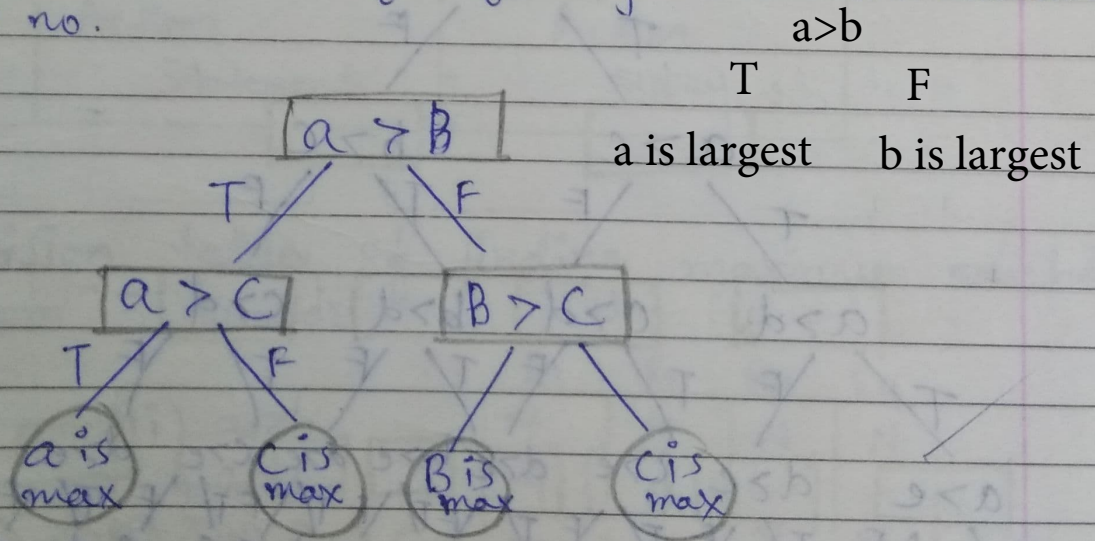 no.
a>b
T F
a is largest b is largest
a > B
T F
a > C B > C
T F
a is max
C is max
B is max
C is max